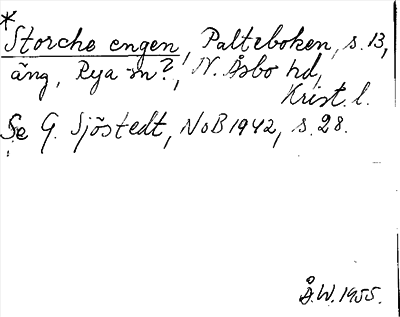 *
Storche engen, Palteboken, s. 13,
äng, Rya sn?, N. Åsbo hd,
Krist. l.
Se G. Sjöstedt, NoB 1942, s. 28.
Å.W. 1955.